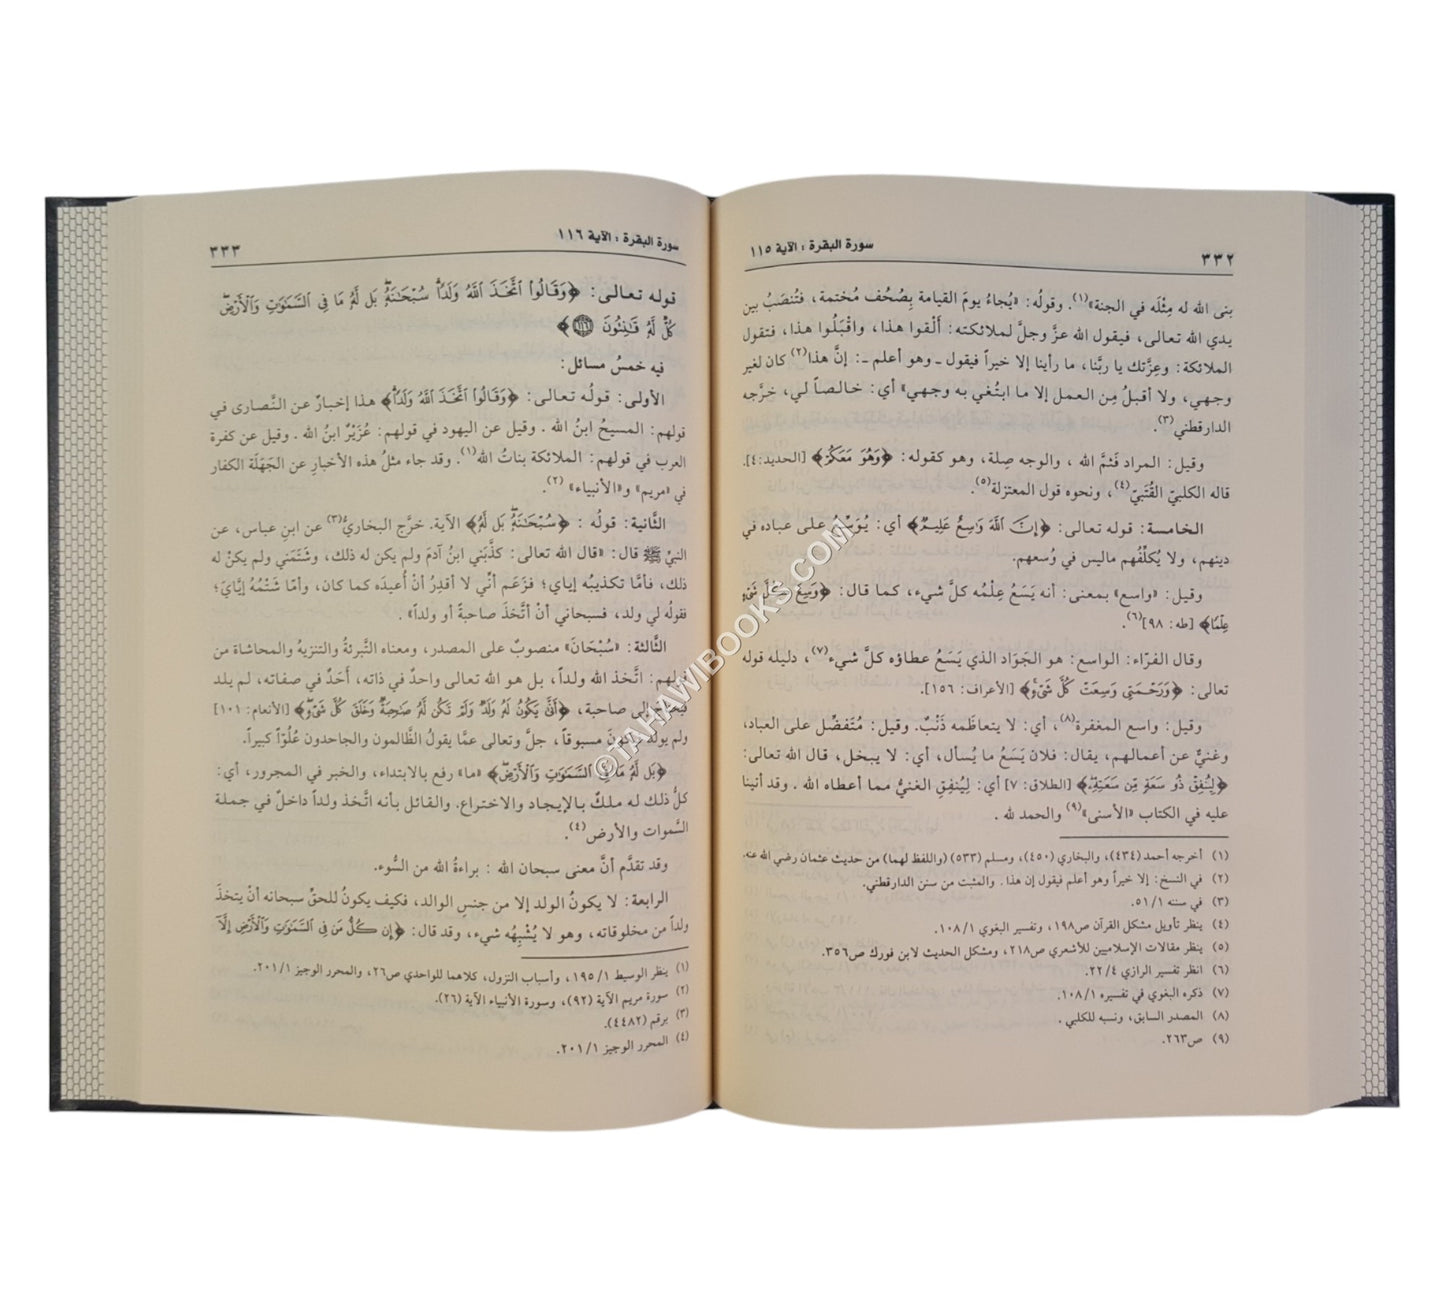 ٣٣٢
سورة البقرة : الآية ١١٥
بنى الله له مِثْلَه في الجنة»(١). وقولُه: «يُجاءُ يومَ القيامة بِصُحُف مُختمة، فتُنصَبُ بين
يدي الله تعالى، فيقول الله عزَّ وجلَّ لملائكته: أَلْقوا هذا، واقْبَلُوا هذا، فتقول
الملائكة: وعِزَّتك يا ربَّنا، ما رأينا إلا خيراً فيقول ـ وهو أعلم ـ: إنَّ هذا(٢) كان لغير
وجهي، ولا أقبلُ مِن العمل إلا ما ابتُغي به وجهي» أي: خالصاً لي، خرَّجه
الدارقطني(٣).
وقيل: المراد فَثمَّ الله ، والوجه صِلة، وهو كقوله: ﴿وَهُوَ مَعَكُمْ﴾ [الحديد:٤].
قاله الكلبيّ القُتَبيّ(٤)، ونحوه قول المعتزلة(٥).
الخامسة: قوله تعالى: ﴿إِنَّ اللَّهَ وَاسِعٌ عَلِيمٌ﴾ أي: يُوَسِّعُ على عباده في
دينهم، ولا يُكلِّفُهم ماليس في وُسعهم.
وقيل: «واسع» بمعنى: أنه يَسَعُ عِلْمُه كلَّ شيء، كما قال: ﴿وَسِعَ كُلَّ شَيْءٍ
عِلْمًا﴾ [طه: ٩٨](٦).
وقال الفرّاء: الواسع: هو الجَوَاد الذي يَسَعُ عطاؤه كلَّ شيء(٧)، دليله قوله
تعالى: ﴿وَرَحْمَتِي وَسِعَتْ كُلَّ شَيْءٍ﴾ [الأعراف: ١٥٦].
وقيل: واسع المغفرة(٨)، أي: لا يتعاظَمه ذَنْبٌ. وقيل: مُتَفضِّل على العباد،
وغنيٌّ عن أعمالهم، يقال: فلان يَسَعُ ما يُسأل، أي: لا يبخل، قال الله تعالى:
﴿لِيُنفِقْ ذُو سَعَةٍ مِّن سَعَتِهِ﴾ [الطلاق: ٧] أي: لِيُنفِقِ الغنيُّ مما أعطاه الله . وقد أتينا
عليه في الكتاب «الأسنى»(٩) والحمد لله .
(١) أخرجه أحمد (٤٣٤)، والبخاري (٤٥٠)، ومسلم (٥٣٣) (واللفظ لهما) من حديث عثمان رضي الله عنه.
(٢) في النسخ: إلا خيراً وهو أعلم فيقول إن هذا. والمثبت من سنن الدارقطني.
(٣) في سننه ٥١/١.
(٤) ينظر تأويل مشكل القرآن ص١٩٨، وتفسير البغوي ١٠٨/١.
(٥) ينظر مقالات الإسلاميين للأشعري ص٢١٨، ومشكل الحديث لابن فورك ص٣٥٦.
(٦) انظر تفسير الرازي ٢٢/٤.
(٧) ذكره البغوي في تفسيره ١٠٨/١.
(٨) المصدر السابق، ونسبه للكلبي .
(٩) ص٢٦٣.
سورة البقرة : الآية ١١٦
٣٣٣
قوله تعالى: ﴿وَقَالُوا اتَّخَذَ اللَّهُ وَلَدًا سُبْحَانَهُ بَل لَّهُ مَا فِي السَّمَاوَاتِ وَالْأَرْضِ
كُلٌّ لَّهُ قَانِتُونَ ١١٦﴾
فيه خمسُ مسائل:
الأولى: قولُه تعالى: ﴿وَقَالُوا اتَّخَذَ اللَّهُ وَلَدًا﴾ هذا إخبارٌ عن النَّصارى في
قولهم: المسيحُ ابنُ الله . وقيل عن اليهود في قولهم: عُزَيْرٌ ابنُ الله . وقيل عن كفرة
العرب في قولهم: الملائكة بناتُ الله(١). وقد جاء مثلُ هذه الأخبارِ عن الجَهَلَة الكفار
في «مريم» و«الأنبياء» (٢).
الثَّانية: قولُه : ﴿سُبْحَانَهُ بَل لَّهُ﴾ الآية. خرَّج البخاريُّ(٣) عن ابنِ عباس، عن
النبيِّ ﷺ قال: «قال الله تعالى: كذَّبَني ابنُ آدمَ ولم يكن له ذلك، وشَتَمَني ولم يكنْ له
ذلك، فأمَّا تكذيبُه إياي؛ فزَعَم أنِّي لا أقدِرُ أنْ أُعيدَه كما كان، وأمّا شَتْمُهُ إيَّايَ؛
فقولُه لي ولد، فسبحاني أنْ أتَّخذَ صاحبةً أو ولداً» .
الثَّالثة: «سُبْحَانَ» منصوبٌ على المصدر، ومعناه التَّبرئةُ والتنزيهُ والمحاشاة من
قولهم: اتَّخذ الله ولداً، بل هو الله تعالى واحدٌ في ذاته، أَحَدٌ في صفاته، لم يلد
فيحتاج إلى صاحبة، ﴿أَنَّىٰ يَكُونُ لَهُ وَلَدٌ وَلَمْ تَكُن لَّهُ صَاحِبَةٌ وَخَلَقَ كُلَّ شَيْءٍ﴾ [الأنعام: ١٠١]
ولم يولد فيكونَ مسبوقاً، جلَّ وتعالى عمَّا يقولُ الظَّالمون والجاحدون عُلُوّاً كبيراً.
﴿بَل لَّهُ مَا فِي السَّمَاوَاتِ وَالْأَرْضِ﴾ «ما» رفع بالابتداء، والخبر في المجرور، أي:
كلُّ ذلك له ملكٌ بالإيجاد والاختراع. والقائل بأنه اتَّخذ ولداً داخلٌ في جملة
السَّموات والأرض(٤).
وقد تقدَّم أنَّ معنى سبحان الله : براءةُ الله من السُّوء.
الرابعة: لا يكونُ الولد إلا من جنسِ الوالد، فكيف يكونُ للحقِّ سبحانه أنْ يتخذَ
ولداً من مخلوقاته، وهو لا يُشْبِهُه شيء، وقد قال: ﴿إِن كُلُّ مَن فِي السَّمَاوَاتِ وَالْأَرْضِ إِلَّا
(١) ينظر الوسيط ١٩٥/١، وأسباب النزول، كلاهما للواحدي ص٢٦، والمحرر الوجيز ٢٠١/١.
(٢) سورة مريم الآية (٩٢)، وسورة الأنبياء الآية (٢٦).
(٣) برقم (٤٤٨٢).
(٤) المحرر الوجيز ٢٠١/١.
©TAHAWIBOOKS.COM